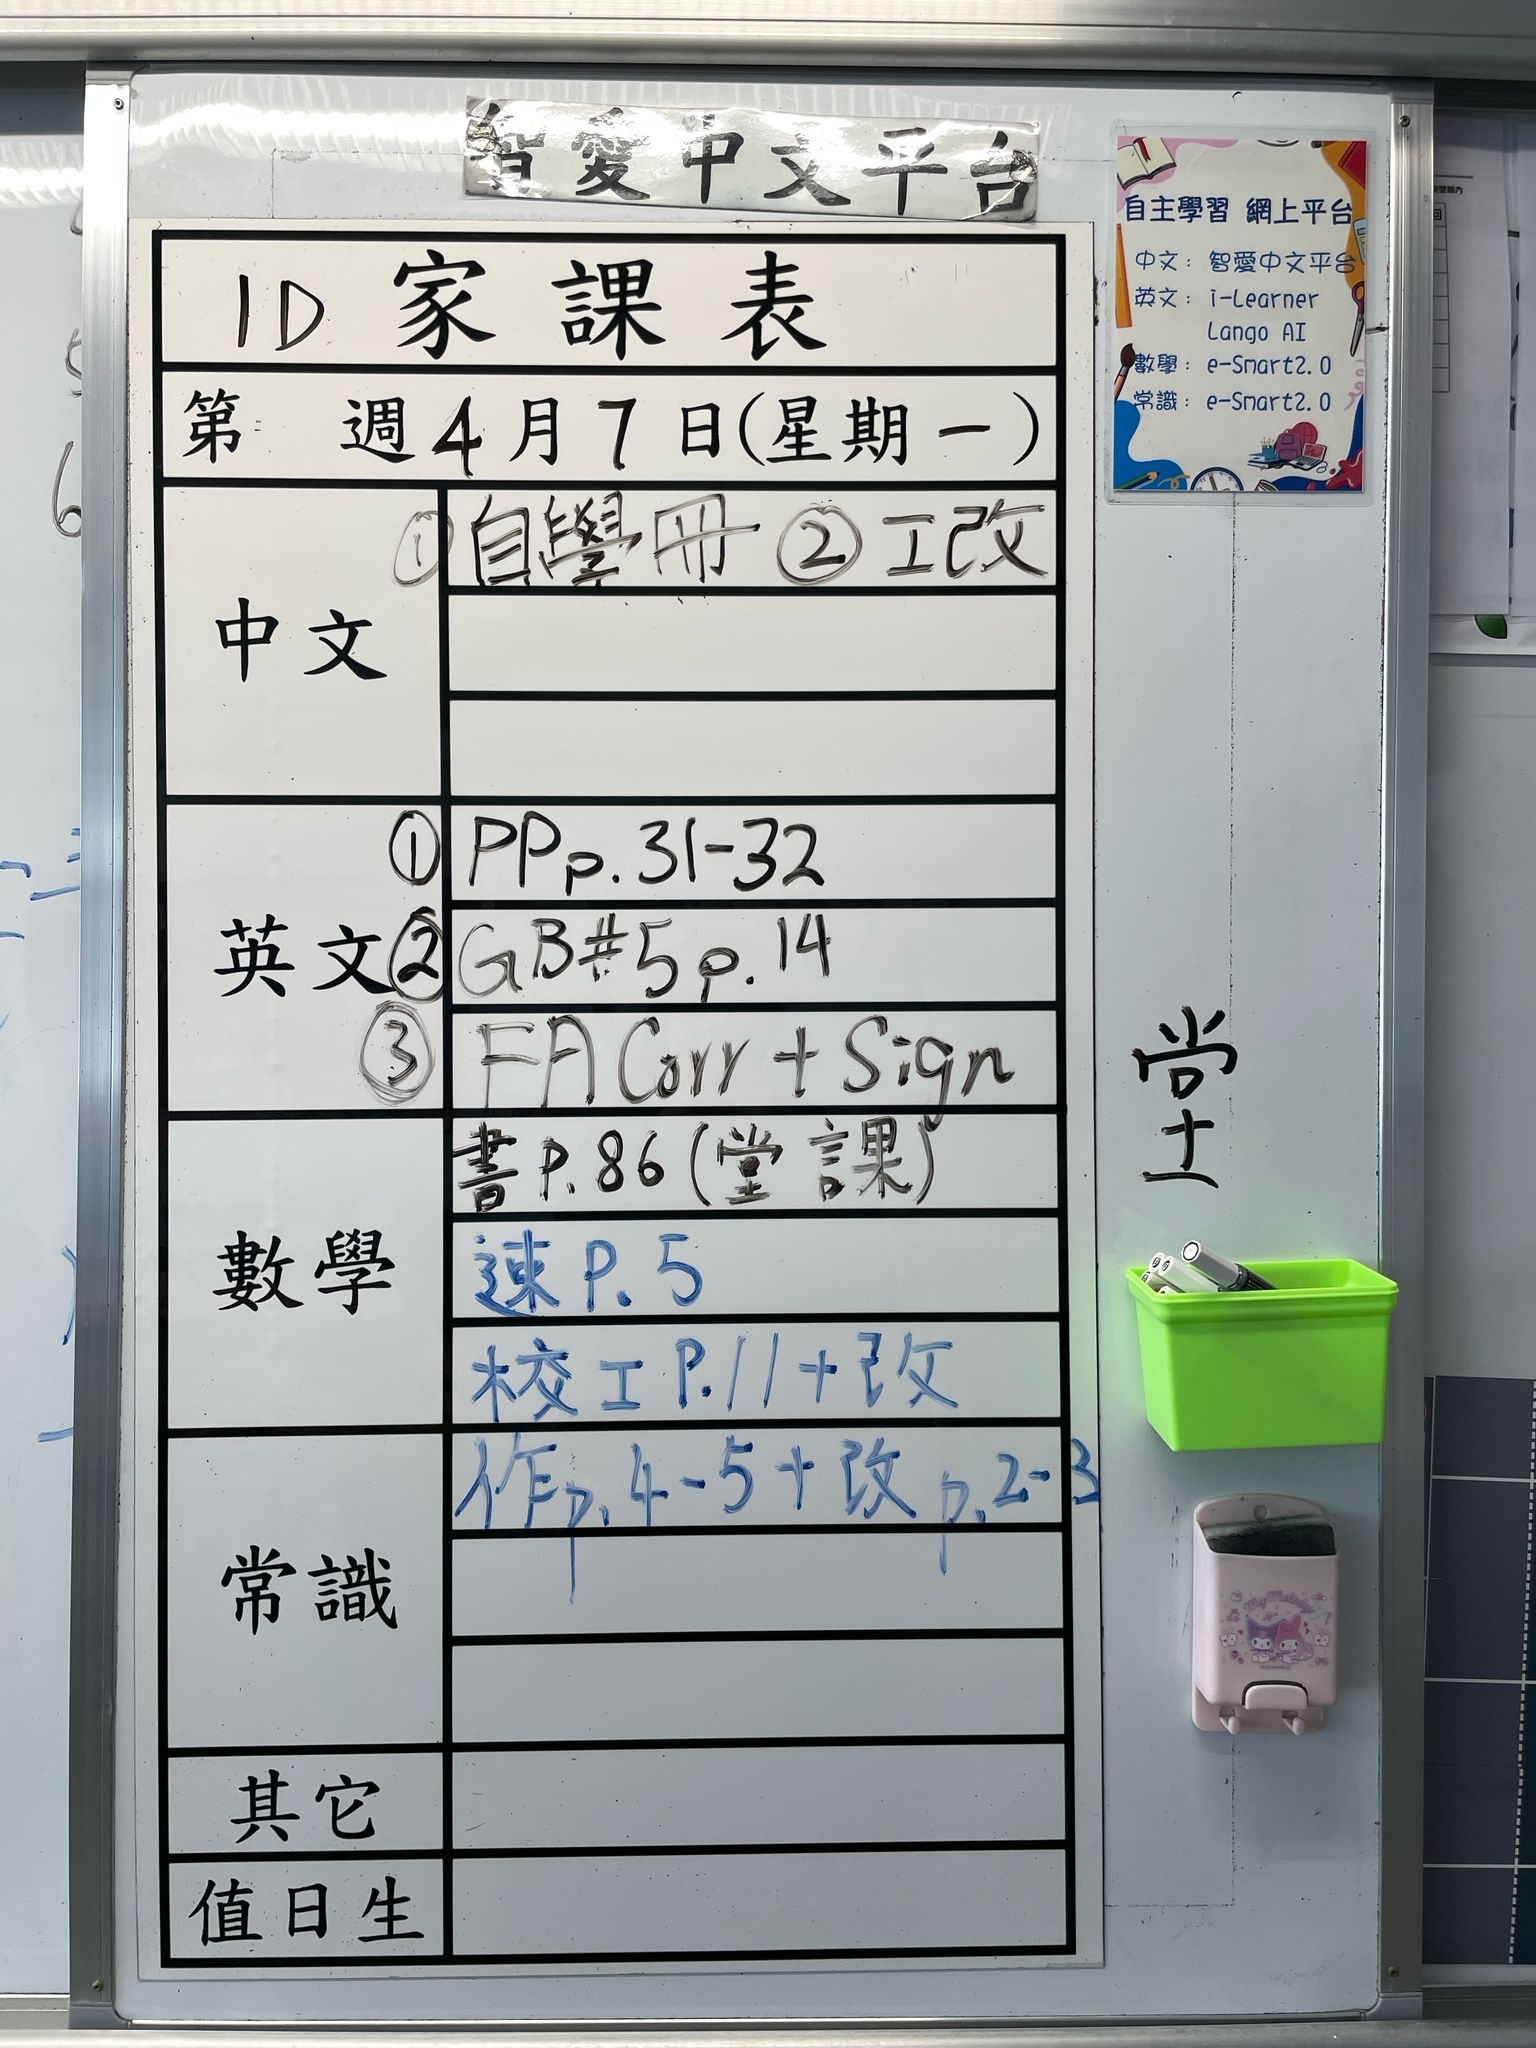 智愛中文平台
1D 家課表
第 週 4 月 7 日(星期一)
中文
① 自學冊 ② 工改
英文
① PP p. 31-32
② GB#5 p. 14
③ FA Corr + Sign
數學
書 P. 86 (堂課)
速 P. 5
校工 P. 11 + 改
常識
作 p. 4-5 + 改 p. 2-3
其它
值日生
自主學習 網上平台
中文: 智愛中文平台
英文: i-Learner
Lango AI
數學: e-Smart2.0
常識: e-Smart2.0
堂
My Melody
6